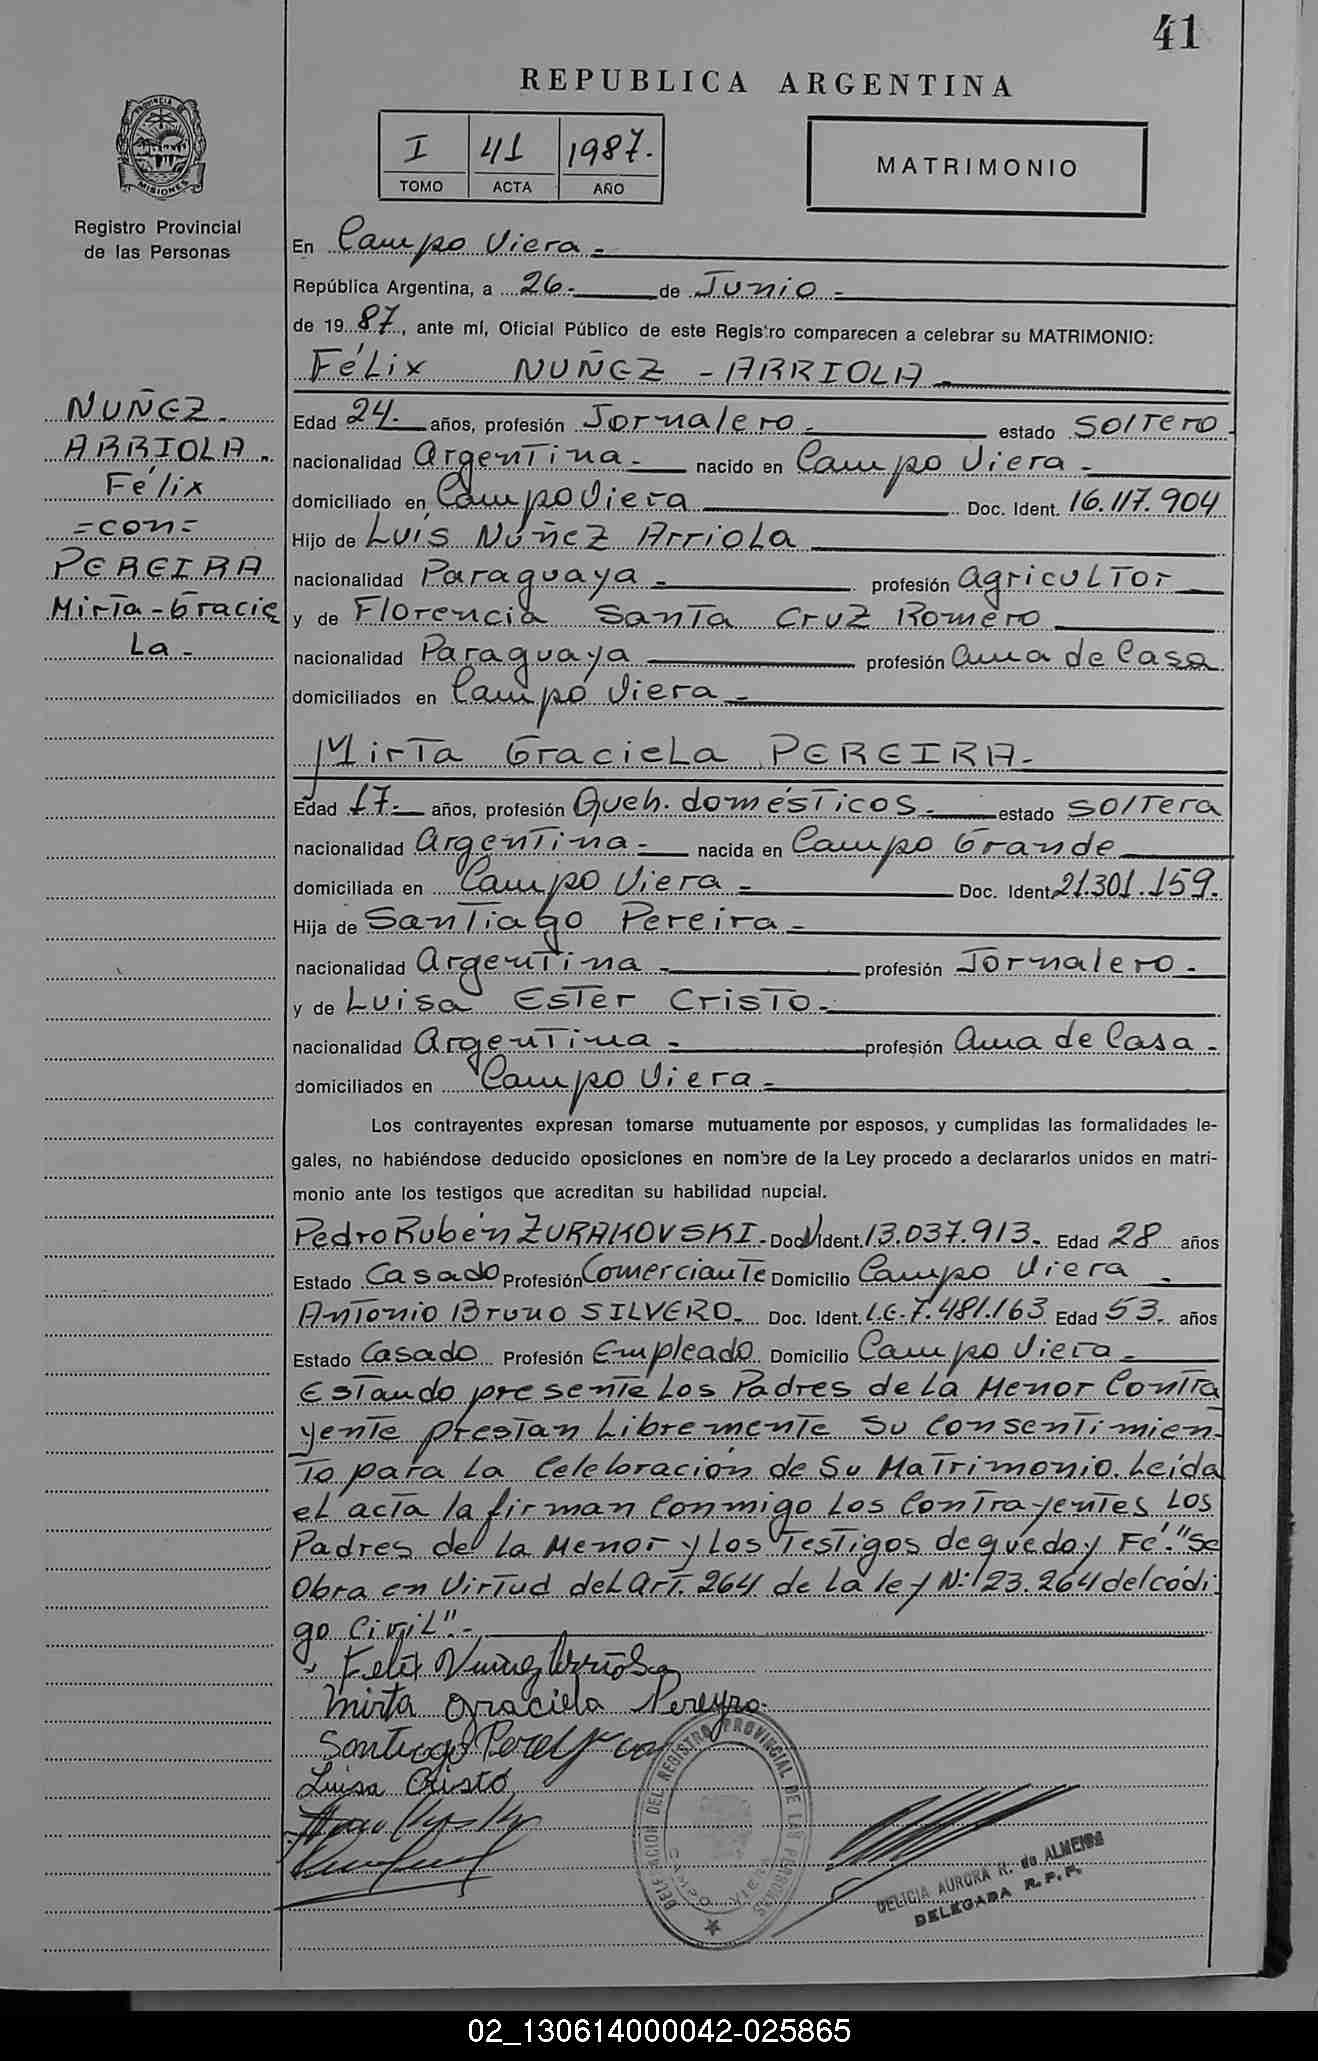 41
REPUBLICA ARGENTINA
PROVINCIA DE
MISIONES
Registro Provincial
de las Personas
I 41 1987.
TOMO ACTA AÑO
MATRIMONIO
NUÑEZ.
ARRIOLA.
Félix
=con=
PEREIRA
Mirta-Gracie
La-
En Campo Viera.-
República Argentina, a 26.- de Junio.-
de 1987, ante mí, Oficial Público de este Registro comparecen a celebrar su MATRIMONIO:
Félix NUÑEZ - ARRIOLA.-
Edad 24.- años, profesión Jornalero.- estado Soltero.
nacionalidad Argentina.- nacido en Campo Viera.-
domiciliado en Campo Viera Doc. Ident. 16.117.904
Hijo de Luis Núñez Arriola
nacionalidad Paraguaya.- profesión Agricultor
y de Florencia Santa Cruz Romero
nacionalidad Paraguaya profesión Ama de Casa
domiciliados en Campo Viera.-
Mirta Graciela PEREIRA.-
Edad 17.- años, profesión Queh. domésticos.- estado Soltera
nacionalidad Argentina.- nacida en Campo Grande
domiciliada en Campo Viera.- Doc. Ident. 21.301.159.
Hija de Santiago Pereira.-
nacionalidad Argentina.- profesión Jornalero.-
y de Luisa Ester Cristo.-
nacionalidad Argentina.- profesión Ama de Casa.-
domiciliados en Campo Viera.-
Los contrayentes expresan tomarse mutuamente por esposos, y cumplidas las formalidades le-
gales, no habiéndose deducido oposiciones en nombre de la Ley procedo a declararlos unidos en matri-
monio ante los testigos que acreditan su habilidad nupcial.
Pedro Rubén ZURAKOVSKI.- Doc. Ident. 13.037.913.- Edad 28 años
Estado Casado Profesión Comerciante Domicilio Campo Viera.-
Antonio Bruno SILVERO.- Doc. Ident. L.E.7.481.163 Edad 53.- años
Estado Casado Profesión Empleado Domicilio Campo Viera.-
Estando presente Los Padres de la Menor Contra
yente prestan Libremente Su Consentimien-
to para la Celebración de Su Matrimonio. Leída
el acta la firman Conmigo Los Contrayentes Los
Padres de la Menor y Los Testigos de que doy Fé."Se
Obra en Virtud del Art. 264 de la ley Nº 23.264 del códi-
go Civil".-
Felix Nuñez Arriola
Mirta Graciela Pereyra.
Santiago Pereyra
Luisa Cristo
DELEGACION DEL REGISTRO PROVINCIAL DE LAS PERSONAS
CAMPO VIERA
DELICIA AURORA R. de ALMEIDA
DELEGADA R.P.P.
02_130614000042-025865